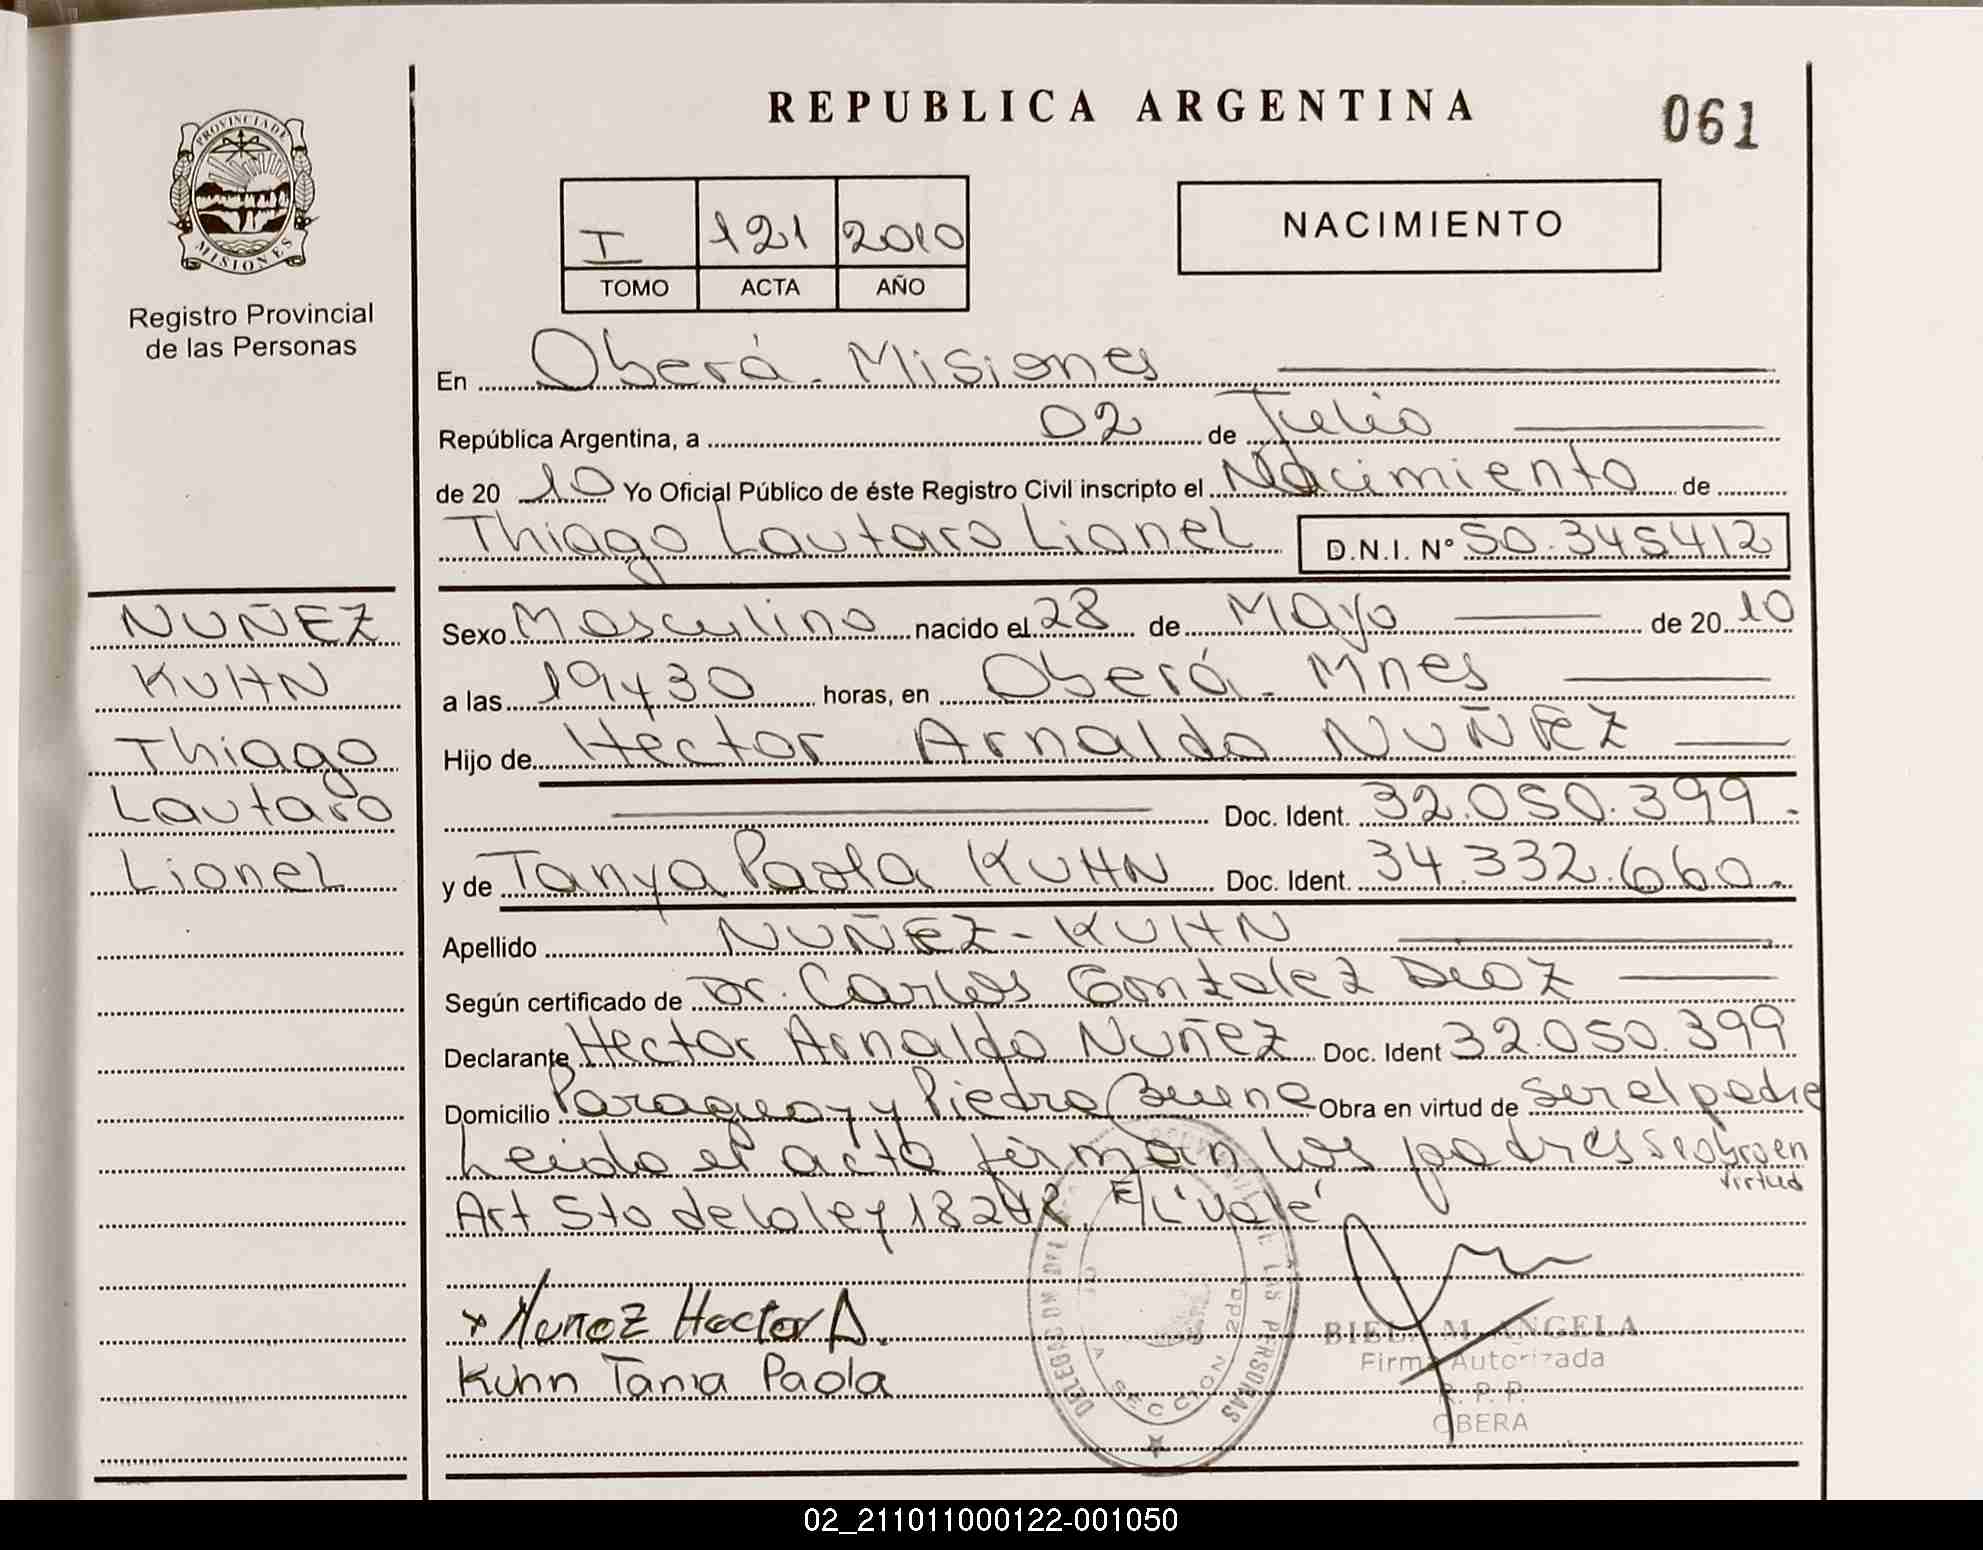 REPUBLICA ARGENTINA
061
PROVINCIA DE
MISIONES
Registro Provincial
de las Personas
I 121 2010
TOMO ACTA AÑO
NACIMIENTO
En Oberá - Misiones
República Argentina, a 02 de Julio
de 20 10 Yo Oficial Público de éste Registro Civil inscripto el Nacimiento de
Thiago Lautaro Lionel D.N.I. Nº 50.345412
NUÑEZ
KUHN
Thiago
Lautaro
Lionel
Sexo Masculino nacido el 28 de Mayo de 20 10
a las 19y30 horas, en Oberá - Mnes
Hijo de Hector Arnaldo NUÑEZ
Doc. Ident. 32.050.399.-
y de Tanya Paola KUHN Doc. Ident. 34.332.660.-
Apellido NUÑEZ - KUHN
Según certificado de Dr. Carlos Gonzalez Diaz
Declarante Hector Arnaldo Nuñez Doc. Ident 32.050.399
Domicilio Paraguay y Piedra Buena Obra en virtud de ser el padre
Leido el acta firman los padres se obra en
virtud
Art 5to de la ley 18248 E/L "vale"
x Nuñez Hector A.
Kuhn Tania Paola
DELEGACION DEL LAS PERSONAS
SECCION 2da
BIELA M. ANGELA
Firma Autorizada
R. P. P.
OBERA
02_211011000122-001050